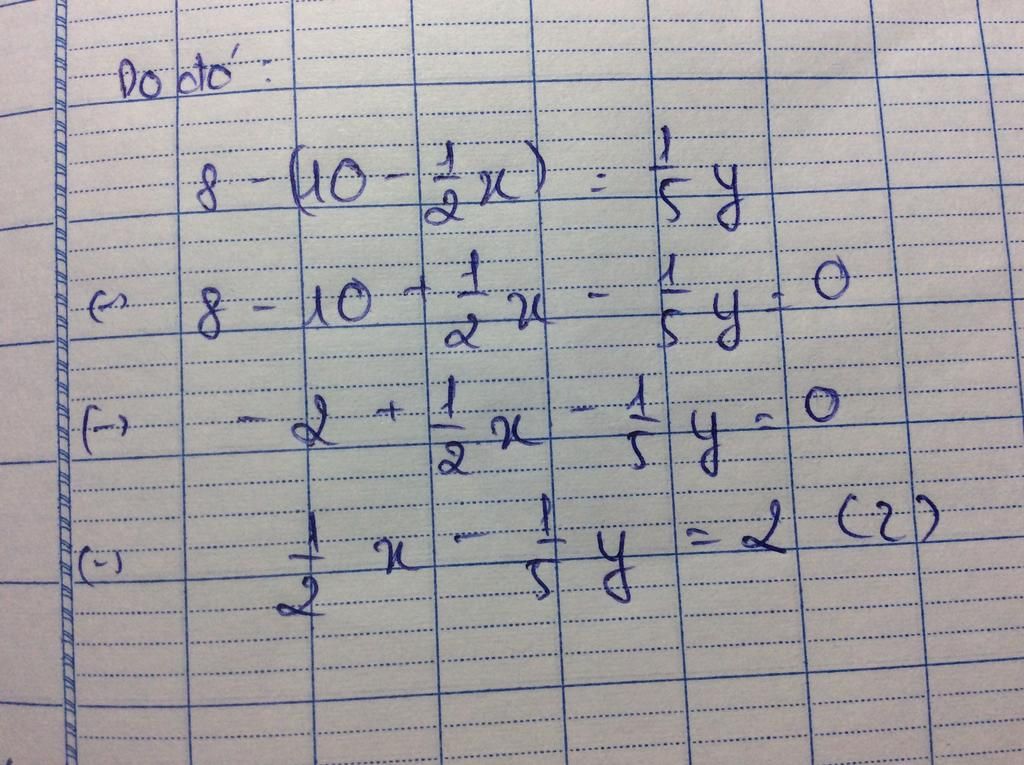 Do đó:
8 - (10 - 1/2 x) = 1/5 y
(->) 8 - 10 + 1/2 x - 1/5 y = 0
(->) - 2 + 1/2 x - 1/5 y = 0
(-) 1/2 x - 1/5 y = 2 (2)